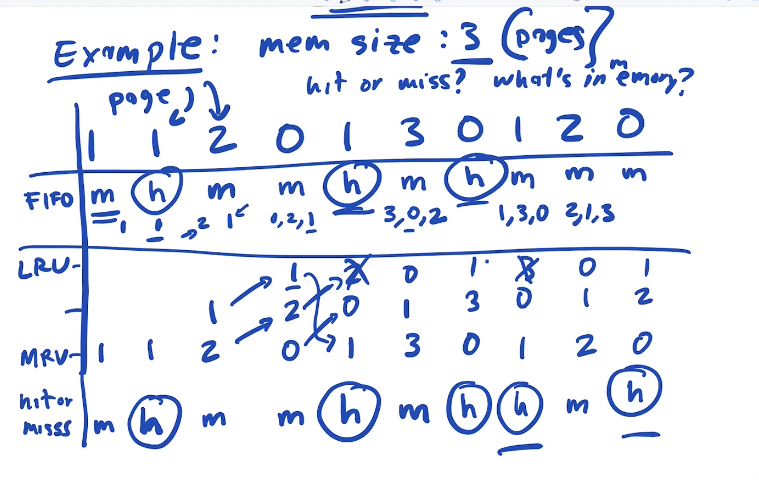 Example: mem size : 3 (pages)
hit or miss? what's in memory?
page
1 1 2 0 1 3 0 1 2 0
FIFO m h m m h m h m m m
1 1 2 1 0,2,1 3,0,2 1,3,0 2,1,3
LRU- 1 2 0 1 3 0 1
- 1 2 0 1 3 0 1 2
MRU- 1 1 2 0 1 3 0 1 2 0
hit or
misss m h m m h m h h m h